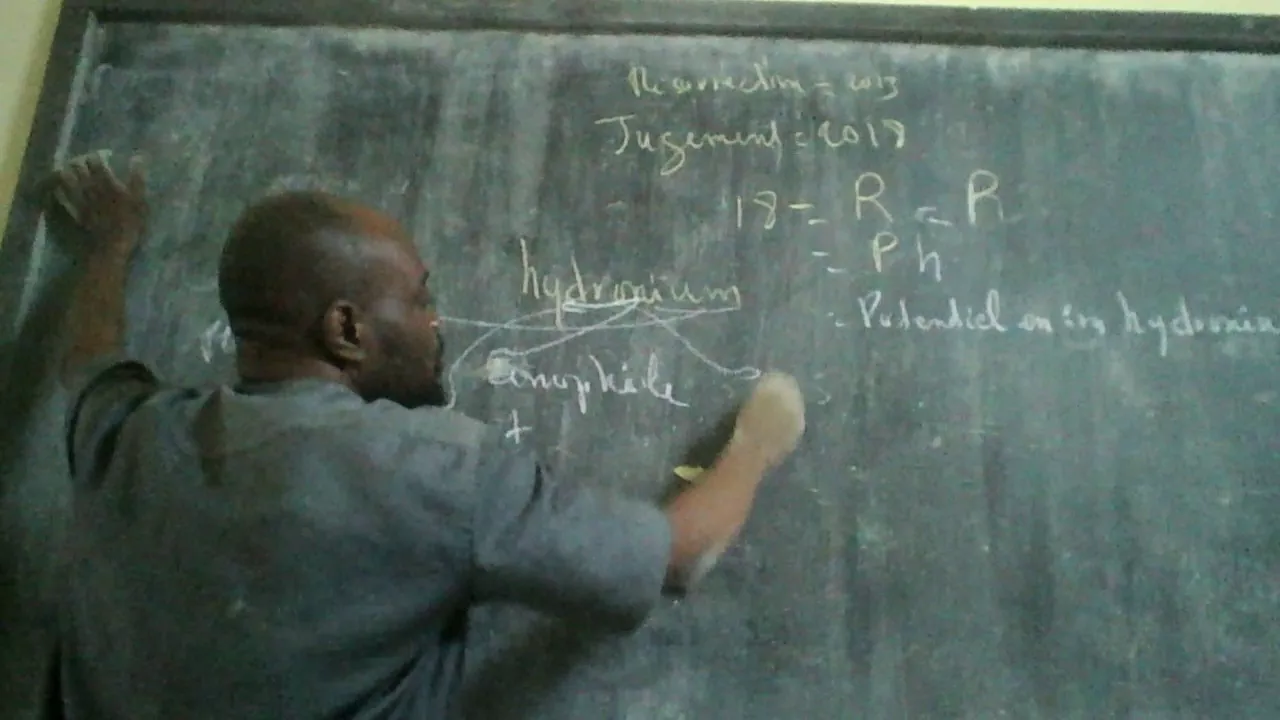 Resurrection = 2013
Jugement = 2018
18 = R = R
= Ph
hydronium
= Potentiel en ion hydronium
+